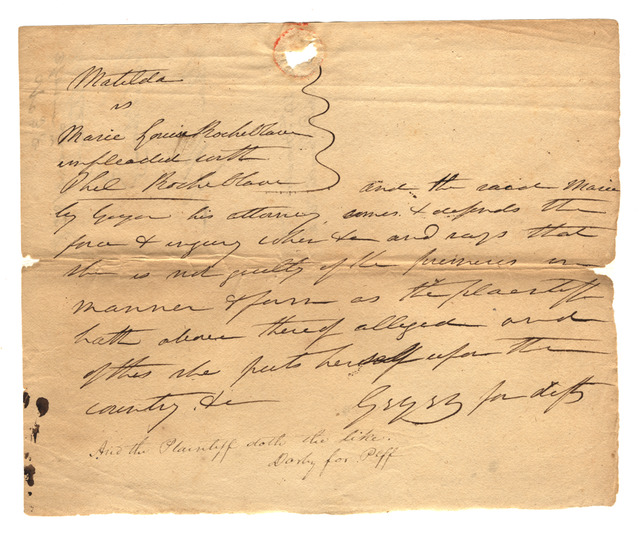 Matilda
vs
Marie Louise Rocheblave
impleaded with
Phil Rocheblave
and the said Marie
by Geyer his attorney, comes & defends the
force & injury when &c and says that
she is not guilty of the premises in
manner & form as the plaintiff
hath above thereof alleged and
of this she puts herself upon the
country. &c
Geyer for defts
And the Plaintiff doth the like.
Darby for Plff